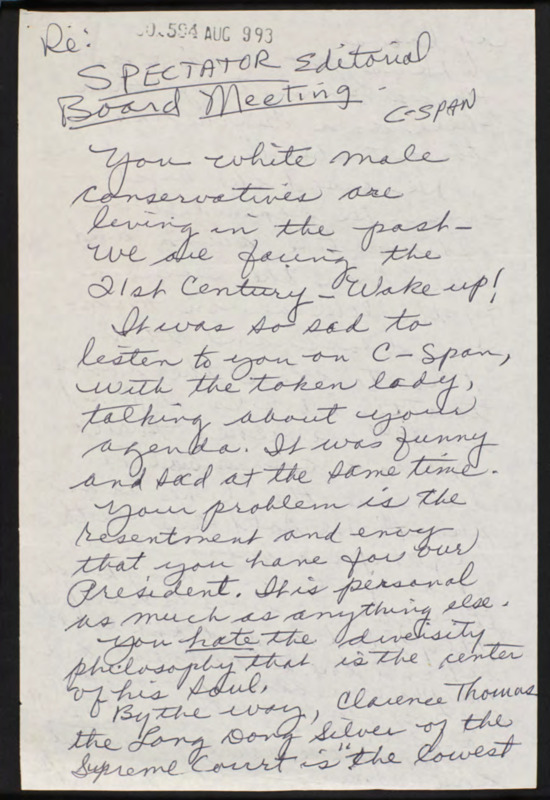 Re: AUG 993
SPECTATOR Editorial
Board Meeting -
C-SPAN
You white male
conservatives are
living in the past -
We are facing the
21st Century - Wake up!
It was so sad to
listen to you on C-Span,
with the token lady,
talking about your
agenda. It was funny
and sad at the same time.
Your problem is the
resentment and envy
that you have for our
President. It is personal
as much as anything else.
You hate the diversity
philosophy that is the center
of his soul.
By the way, Clarence Thomas
the Long Dong Silver of the
Supreme Court is "the lowest